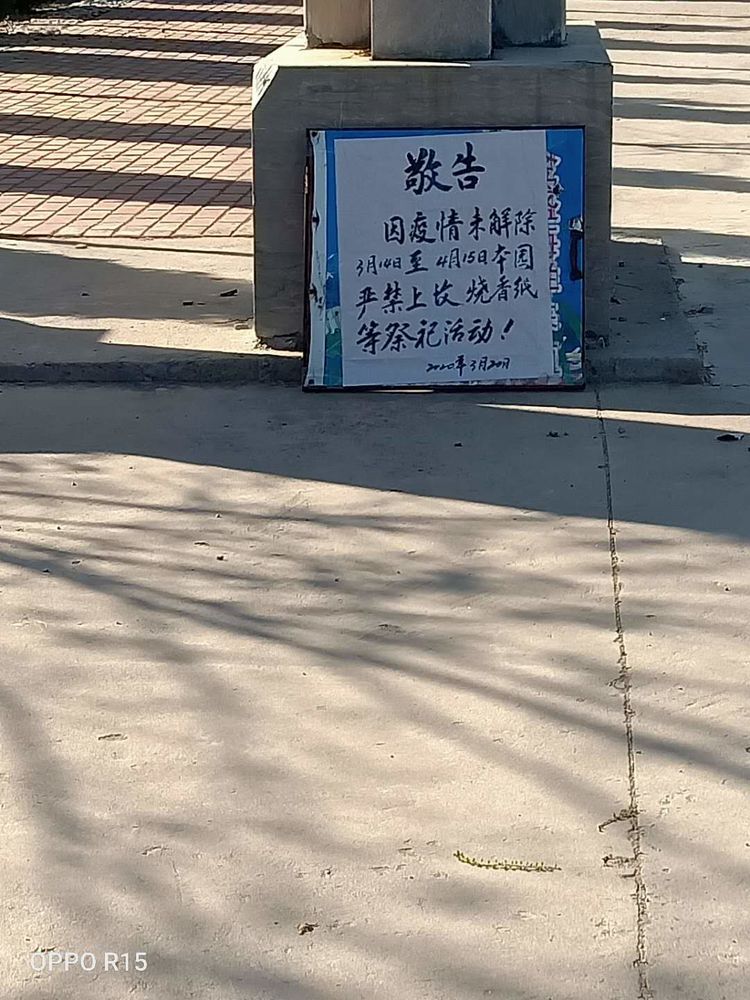 敬告
因疫情未解除
3月14日至4月15日本园
严禁上坟烧香纸
等祭祀活动！
2020年3月20日
OPPO R15